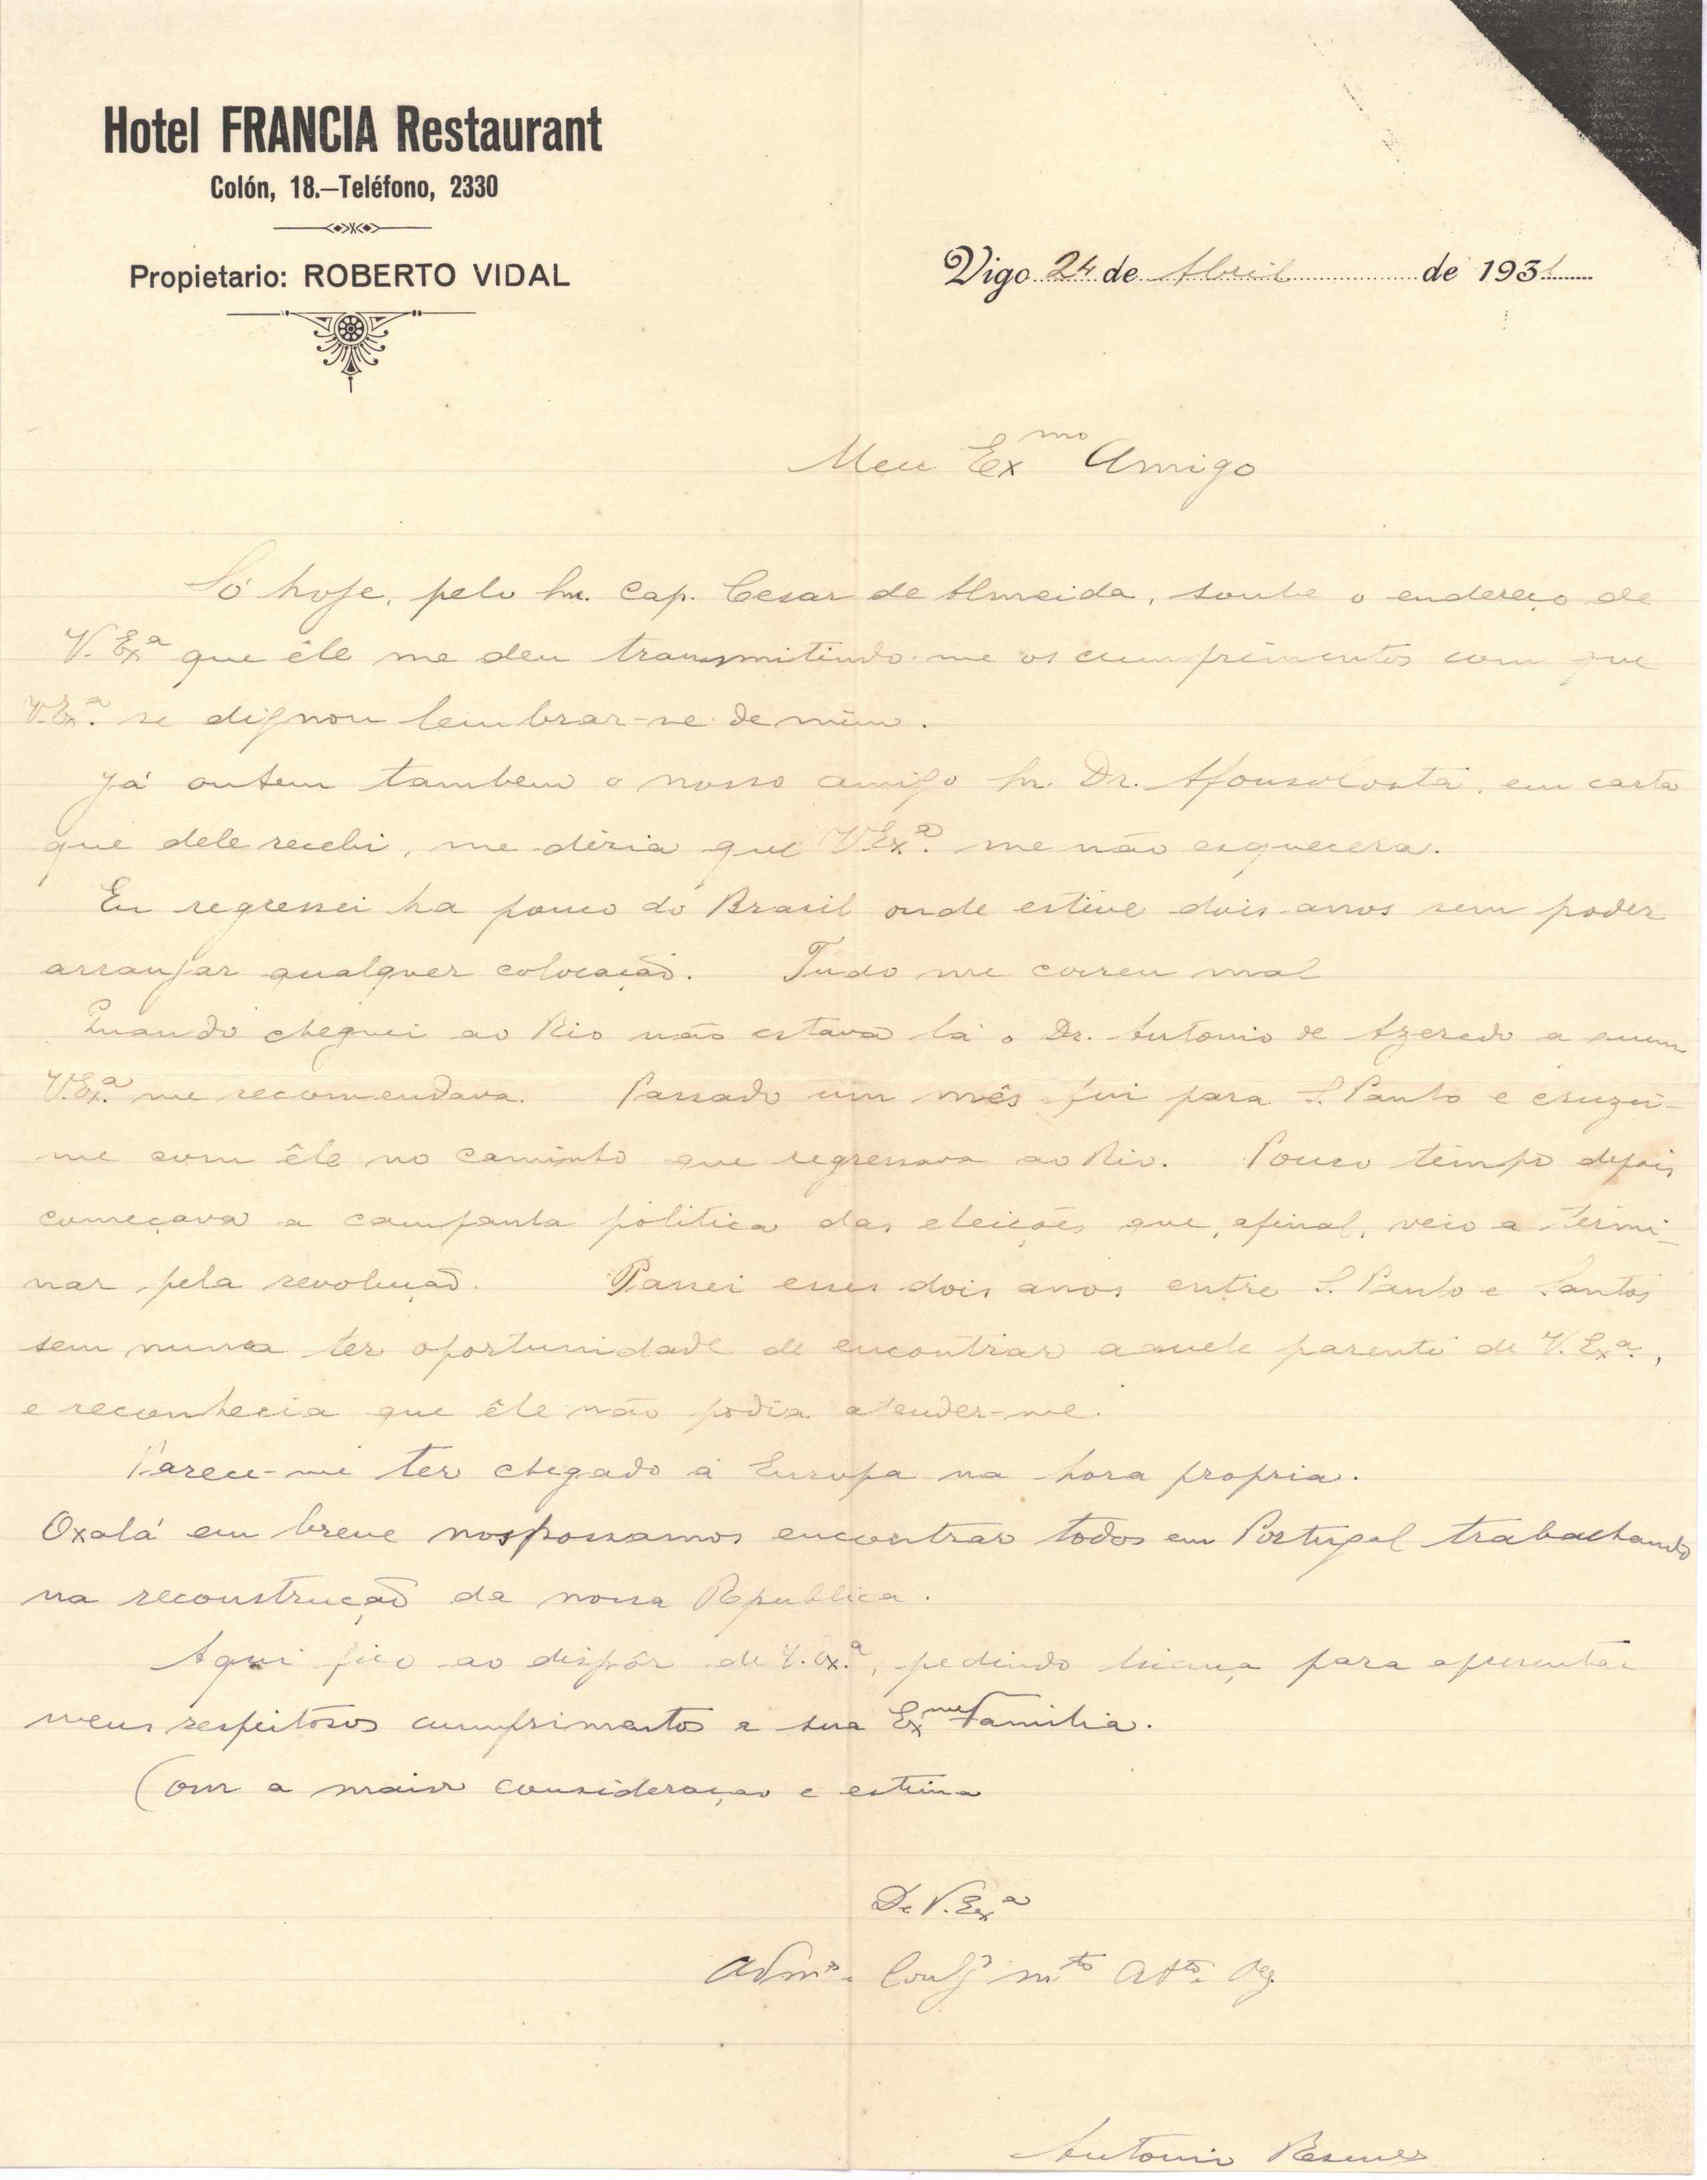 Hotel FRANCIA Restaurant
Colón, 18.—Teléfono, 2330
Propietario: ROBERTO VIDAL
Vigo 24 de Abril de 1931
Meu Exmo Amigo
Só hoje, pelo Snr. Cap. Cesar de Almeida, soube o endereço de
V. Exª que êle me deu transmitindo-me os cumprimentos com que
V. Exª. se dignou lembrar-se de mim.
Já ontem tambem o nosso amigo Snr. Dr. Afonso Costa, em carta
que dele recebi, me dizia que V. Exª. me não esquecera.
Eu regressei ha pouco do Brasil onde estive dois anos sem poder
arranjar qualquer colocação. Tudo me correu mal
Quando cheguei ao Rio não estava lá o Dr. Antonio de Azeredo a quem
V. Exª. me recomendava. Passado um mês fui para S. Paulo e cruzei-
me com êle no caminho que regressava ao Rio. Pouco tempo depois
começava a campanha politica das eleições que, afinal, veio a termi-
nar pela revolução. Passei esses dois anos entre S. Paulo e Santos
sem nunca ter oportunidade de encontrar aquele parente de V. Exª.,
e reconhecia que êle não podia atender-me.
Parece-me ter chegado á Europa na hora propria.
Oxalá em breve nos possamos encontrar todos em Portugal trabalhando
na reconstrução da nossa Republica.
Aqui fico ao dispôr de V. Exª., pedindo licença para apresentar
meus respeitosos cumprimentos a sua Exma Familia.
Com a maior consideração e estima
De V. Exª
Admor. mto Atto. Obg.
Antonio